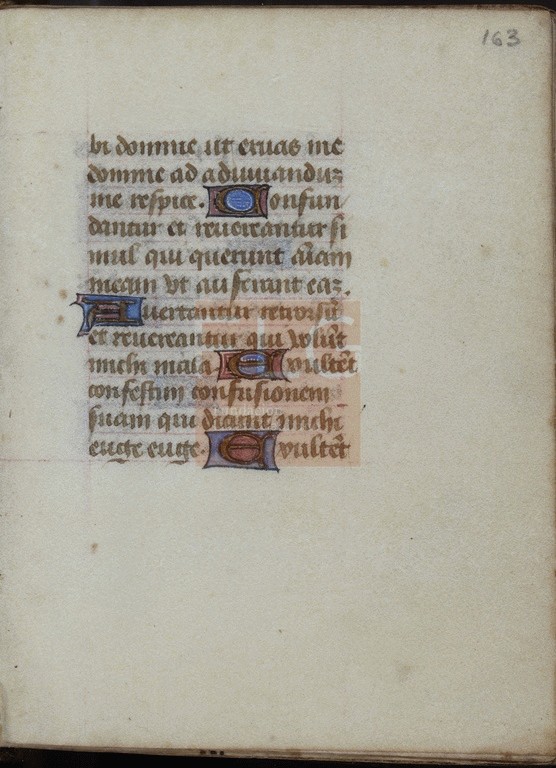 163
bi domine ut eruas me
domine ad adiuuanduz
me respice. Confun
dantur et reuereantur si
mul qui querunt aīam
meam vt auferant eaz.
Auertantur retrorsū
et reuereantur qui volūt
michi mala Exultēt
confestim confusionem
suam qui dicunt michi
euge euge. Exultēt